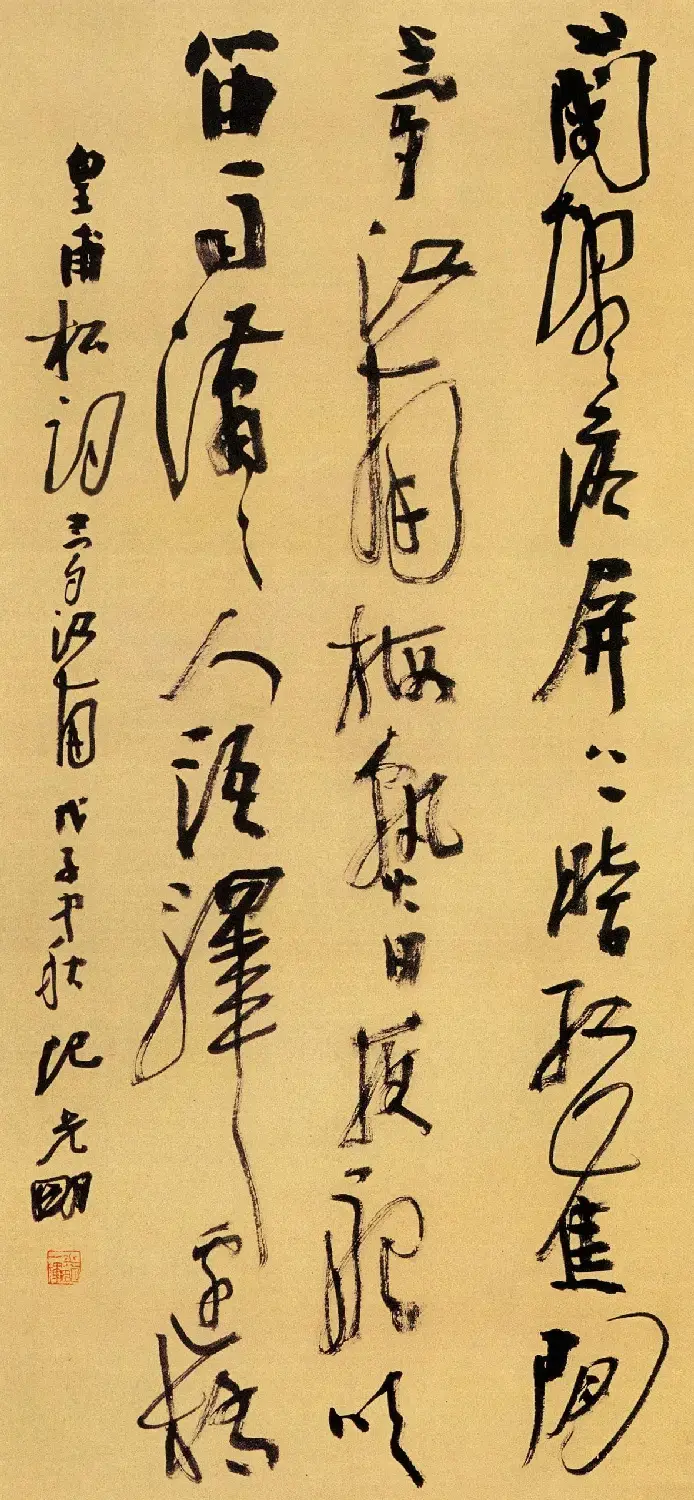 蘭燼落屏上暗紅蕉閒
夢江南梅熟日夜船吹
笛雨瀟〻人語驛邊橋
皇甫松詞夢江南戊子中秋紀光明